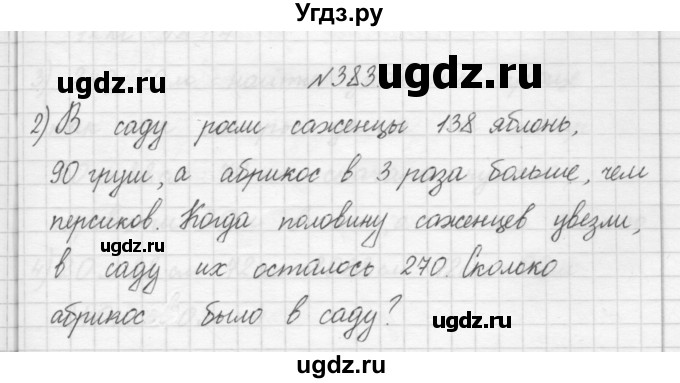 Угдз.ру
ugdz.ru
№383
ugdz.ru
2) В саду росли саженцы 138 яблонь,
90 груш, а абрикос в 3 раза больше, чем
персиков. Когда половину саженцев увезли,
ugdz.ru
в саду их осталось 270. Сколько
абрикос было в саду?
ugdz.ru
ugdz.ru